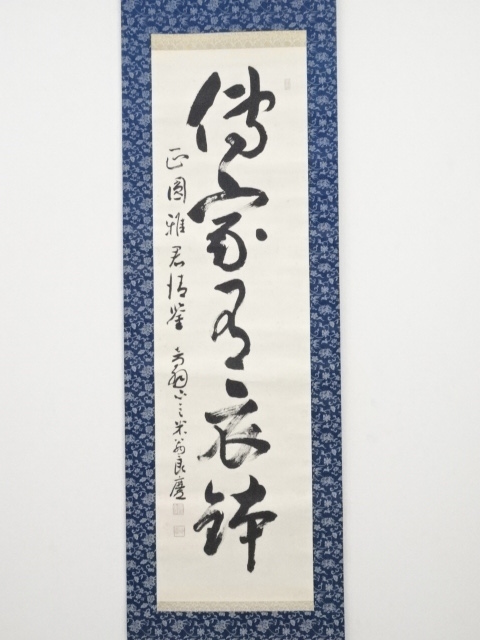 傳家有衣鉢
正圓雅君清鑒
良慶